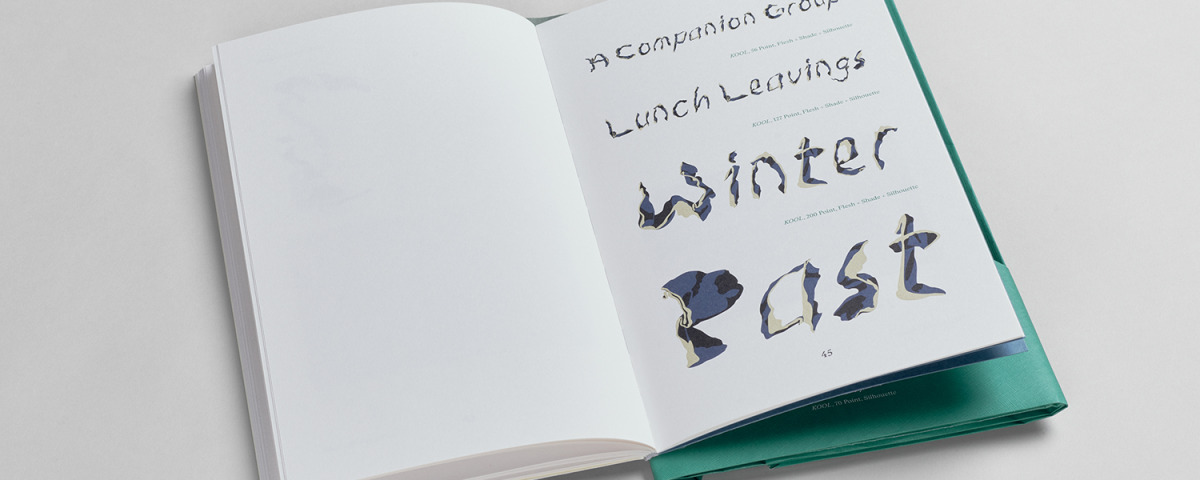 A Companion Group
KOOL, 56 Point, Flesh + Shade + Silhouette
Lunch Leavings
KOOL, 127 Point, Flesh + Shade + Silhouette
Winter
KOOL, 200 Point, Flesh + Shade + Silhouette
Past
45
KOOL, 76 Point, Silhouette